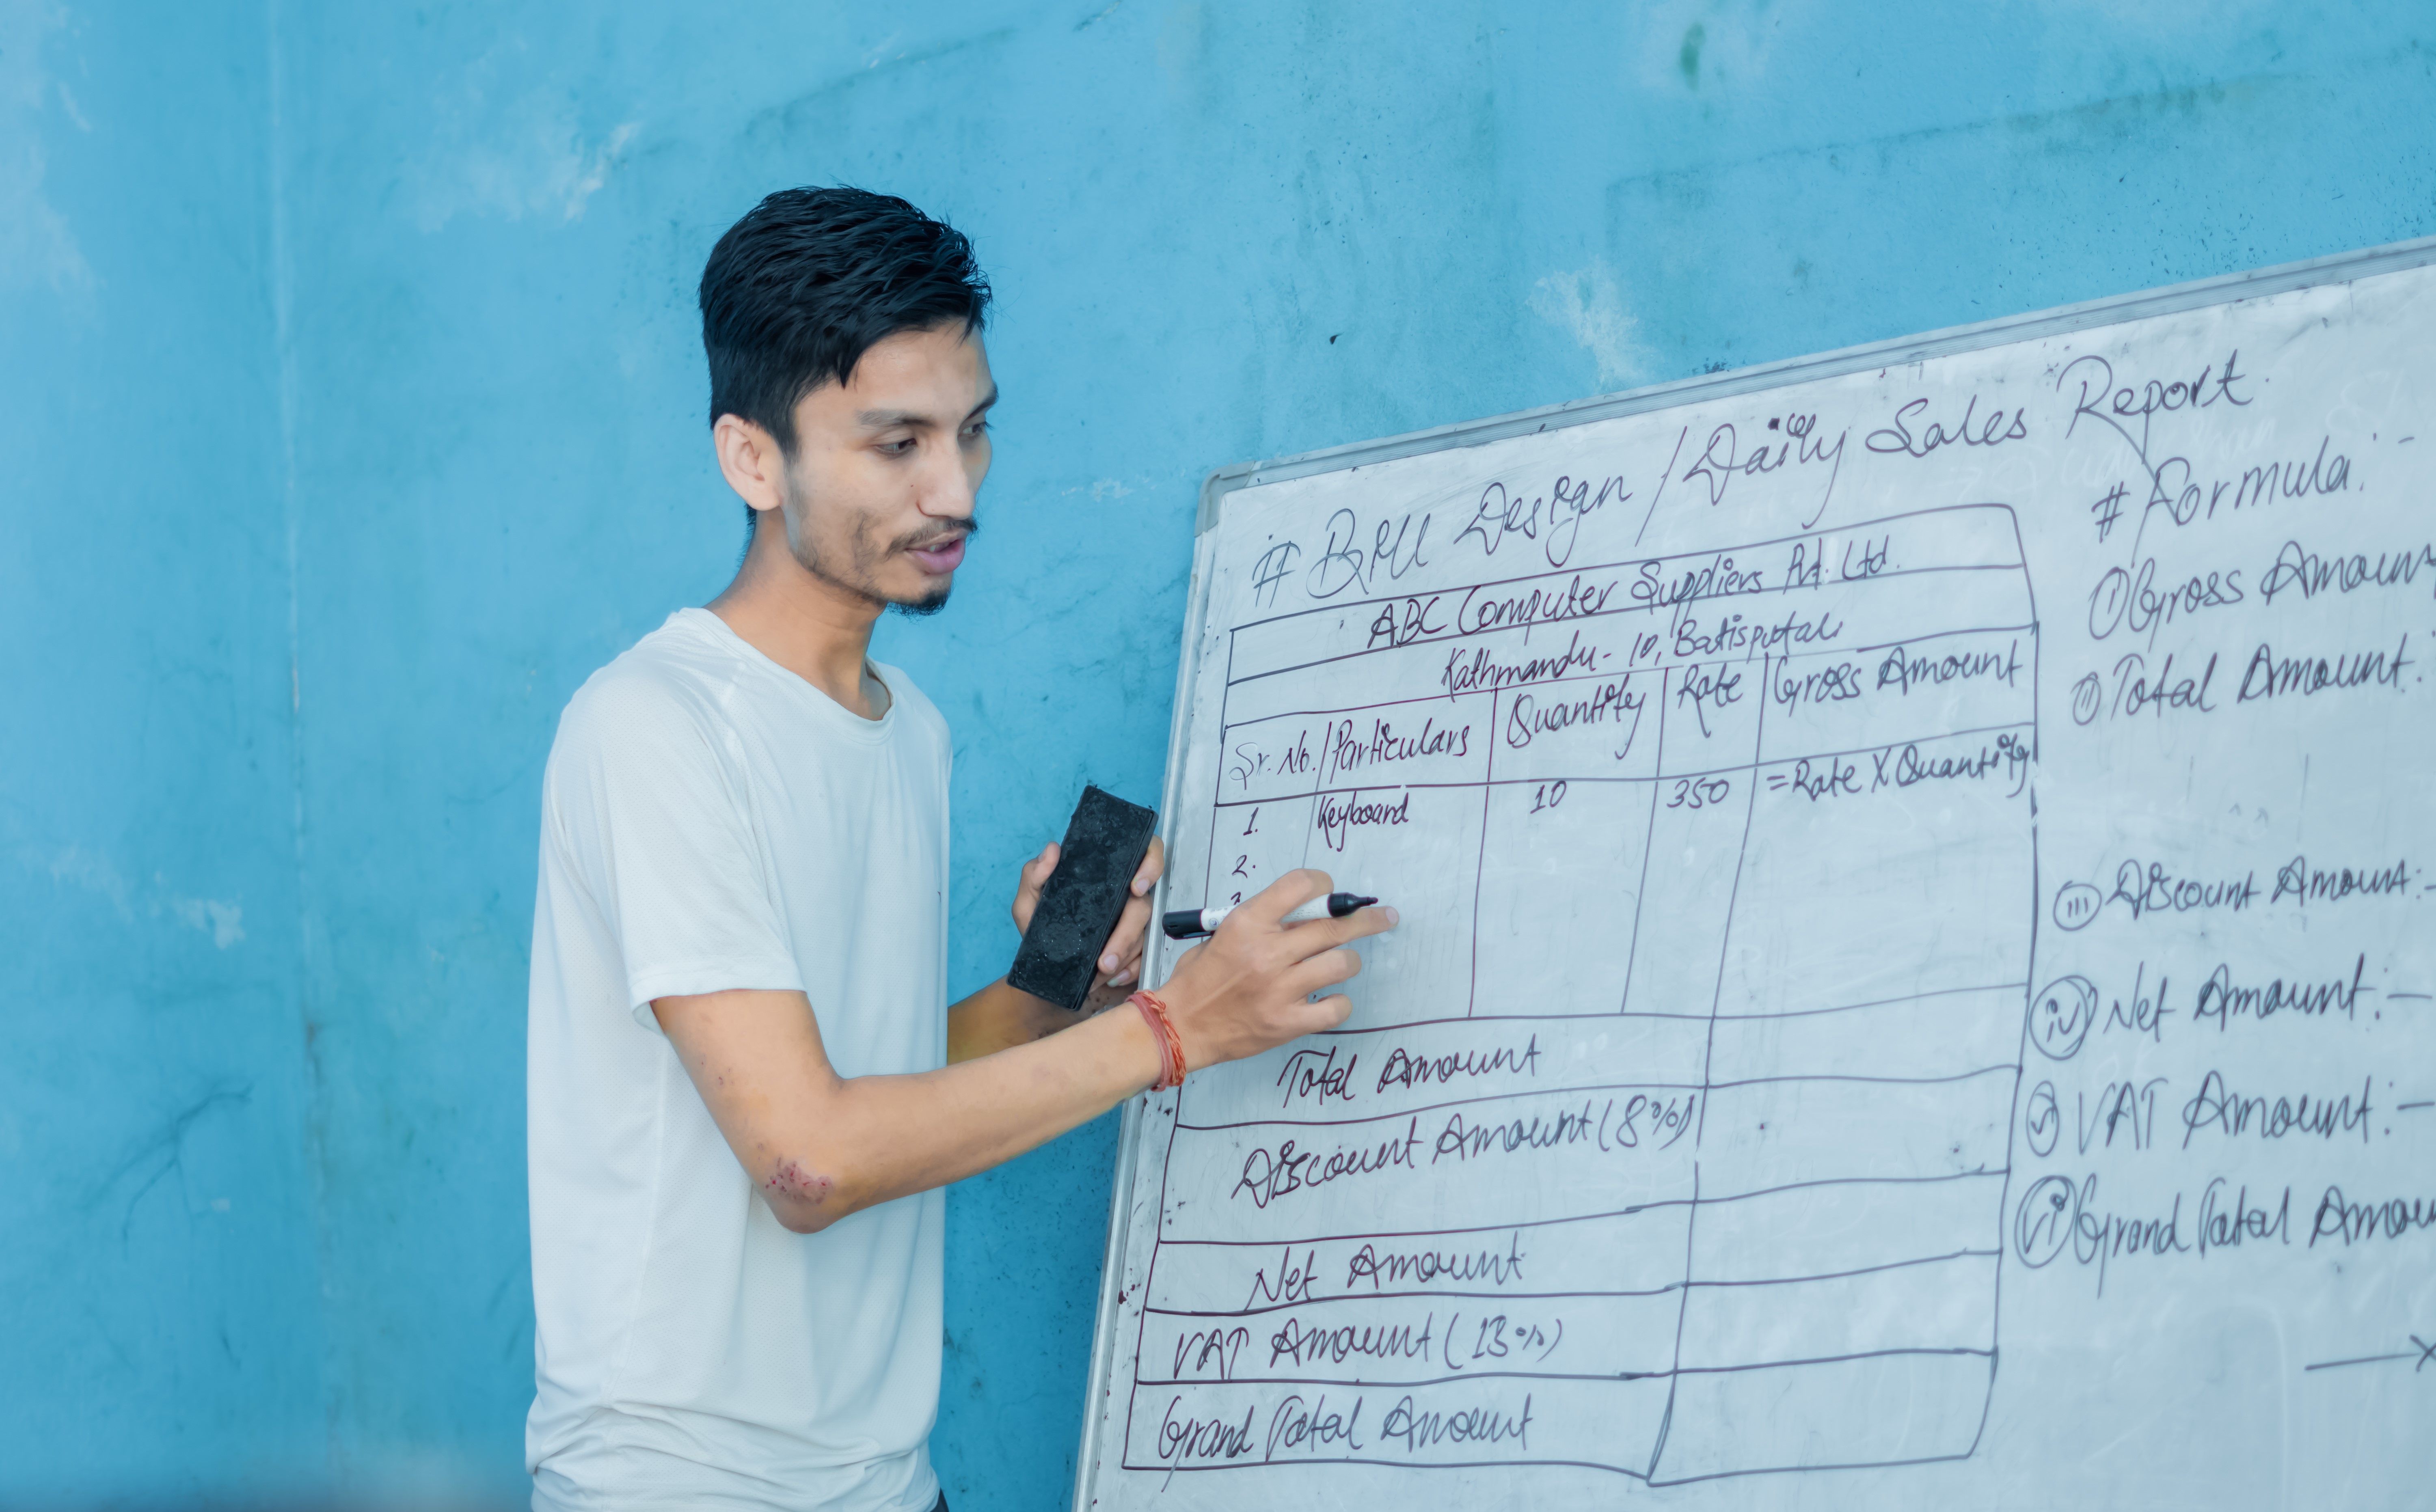 # Bill Design / Daily Sales Report
ABC Computer Suppliers Pvt. Ltd.
Kathmandu - 10, Batisputali
Sr. No. Particulars Quantity Rate Gross Amount
1. Keyboard 10 350 = Rate X Quantity
2.
3.
Total Amount
Discount Amount (8%)
Net Amount
VAT Amount (13%)
Grand Total Amount
# Formula:-
(i) Gross Amoun
(ii) Total Amount:
(iii) Discount Amount:-
(iv) Net Amount:-
(v) VAT Amount:-
(vi) Grand Total Amou